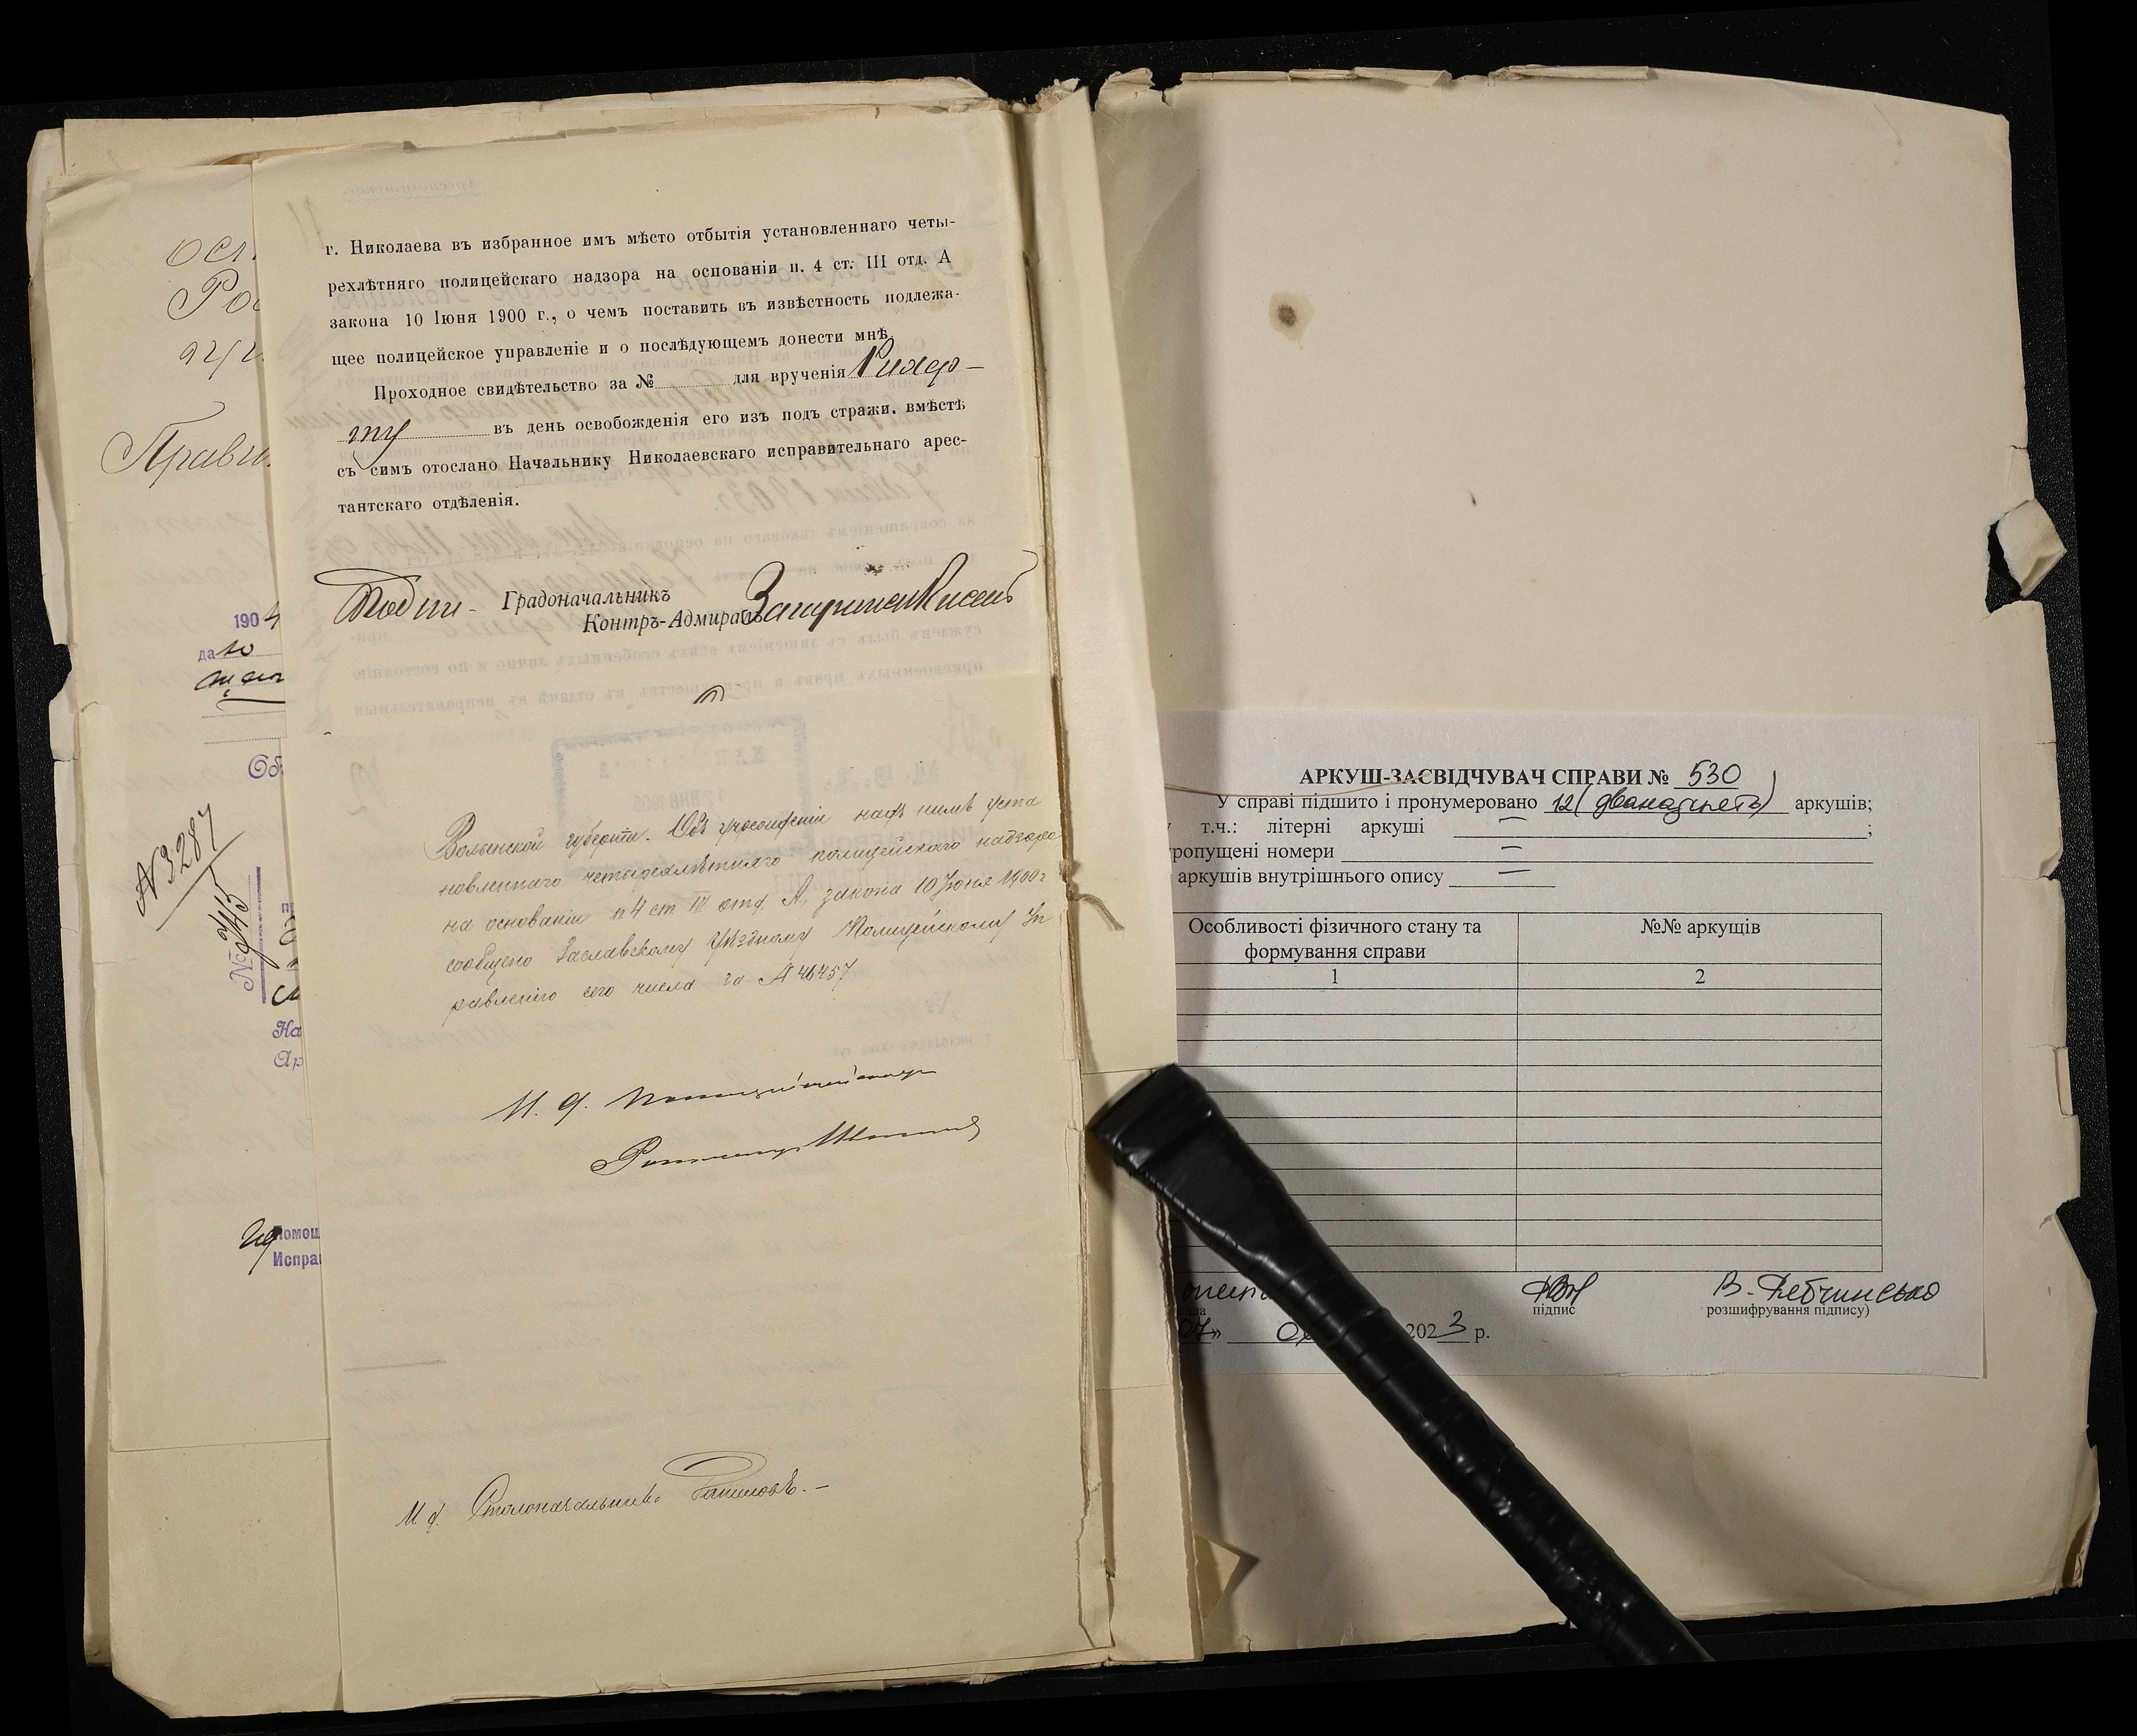 г. Николаева въ избранное имъ мѣсто отбытія установленнаго четы-
рехлѣтняго полицейскаго надзора на основаніи п. 4 ст. III отд. А
закона 10 Іюня 1900 г., о чемъ поставить въ извѣстность подлежа-
щее полицейское управленіе и о послѣдующемъ донести мнѣ.
Проходное свидѣтельство за № для врученія Рихер-
ту въ день освобожденія его изъ подъ стражи, вмѣстѣ
съ симъ отослано Начальнику Николаевскаго исправительнаго арес-
тантскаго отдѣленія.
Подпи- Градоначальникъ
Контръ-Адмиралъ
Волынской губерніи. Объ учрежденіи надъ нимъ уста
новленнаго четырехлѣтняго полицейскаго надзора
на основаніи п 4 ст III отд. А. закона 10 Іюня 1900 г
сообщено Заславскому Уѣздному Полицейскому Уп
равленію сего числа за № 46457
И. д. Полиціймейстера
И д. Столоначальника
Рос
Прави
1904
да
Об
№ 3287
№
На
Ар
Помощ
Испра
АРКУШ-ЗАСВІДЧУВАЧ СПРАВИ № 530
У справі підшито і пронумеровано 12 (дванадцять) аркушів;
т.ч.: літерні аркуші — ;
ропущені номери —
аркушів внутрішнього опису —
Особливості фізичного стану та формування справи
№№ аркушів
1
2
підпис
розшифрування підпису)
2023 р.